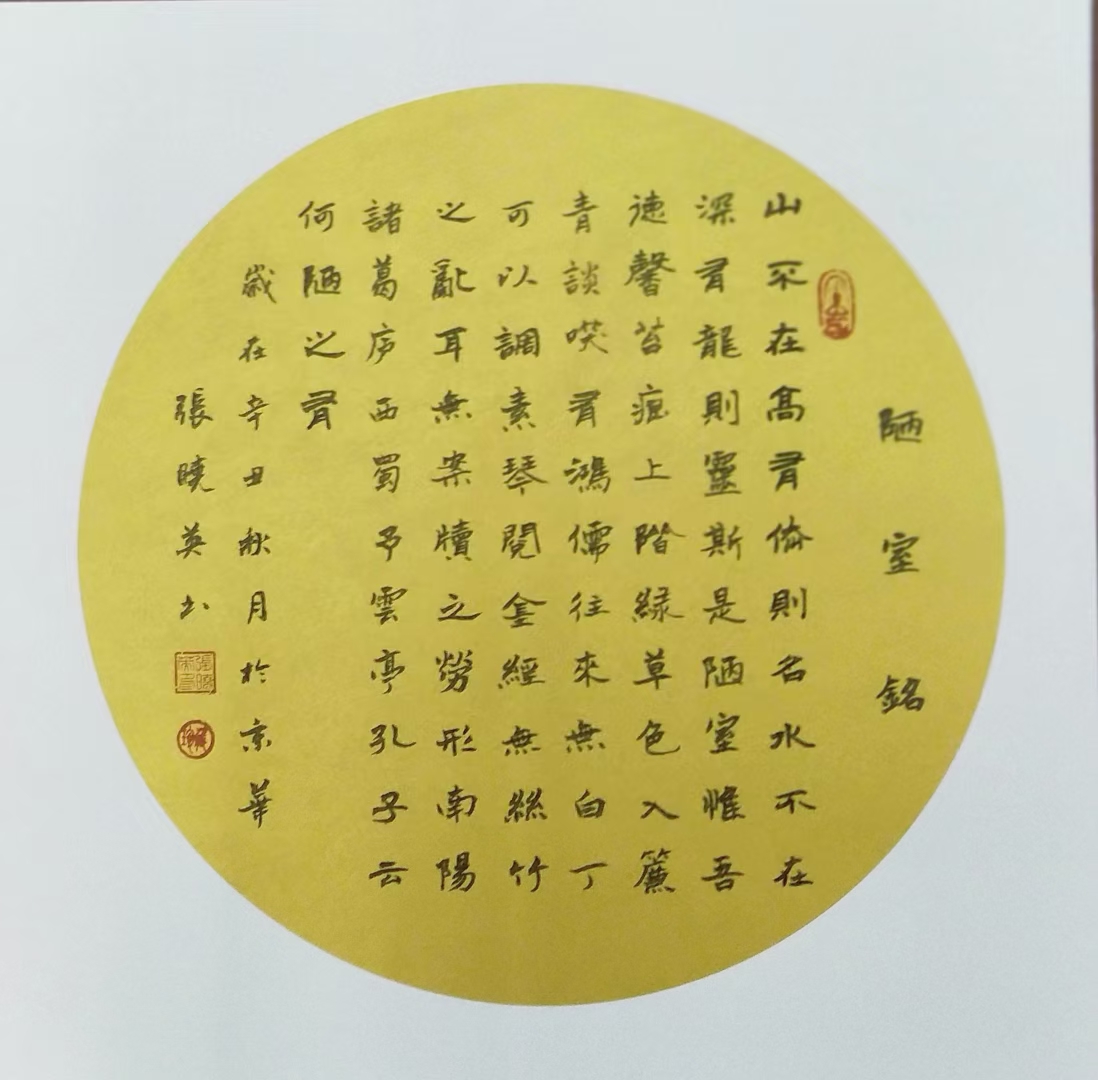 陋室銘
山不在高有僊則名水不在
深有龍則靈斯是陋室惟吾
德馨苔痕上階緑草色入簾
青談咲有鴻儒往來無白丁
可以調素琴閱金經無絲竹
之亂耳無案牘之勞形南陽
諸葛庐西蜀子雲亭孔子云
何陋之有
歲在辛丑秋月於京華
張曉英书